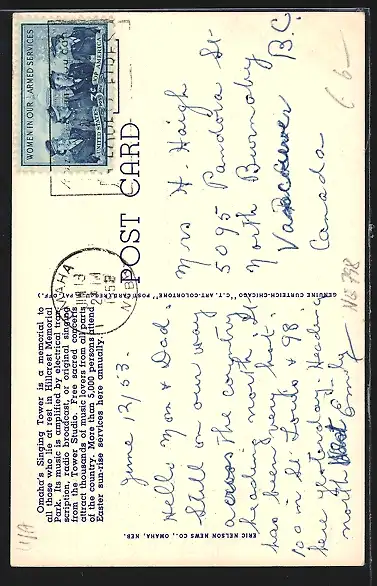 Omaha's Singing Tower is a memorial to
all those who lie at rest in Hillcrest Memorial
Park. Its music is amplified by electrical tran-
scription, radio broadcast, or original singing
from the Tower Studio. Free sacred concerts
attract thousands of music lovers from all parts
of the country. More than 5,000 persons attend
Easter sun-rise services here annually.
June 12/53.
Hello Mom & Dad.
Still on our way
across the country
heading
has been very hot.
100 in St Louis & 98
here yesterday. Headin
north West
ERIC NELSON NEWS CO., OMAHA, NEB.
GENUINE CURTEICH-CHICAGO "C.T. ART-COLORTONE" POST CARD (REG. U.S. PAT. OFF.)
POST CARD
WOMEN IN OUR ARMED SERVICES
UNITED STATES OF AMERICA
3c
OMAHA
JUN 13
NEB
Mrs H. Haigh
5095 Pandora St
North Burnaby
Vancouver B.C.
Canada
NB798